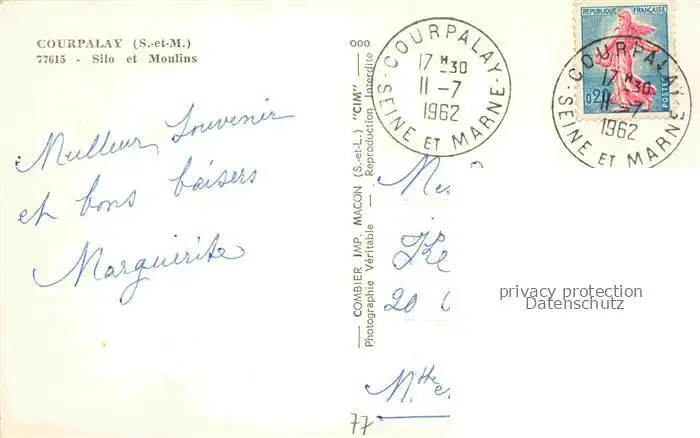 COURPALAY (S.-et-M.)
77615 - Silo et Moulins
Meilleur Souvenir
et bons baisers
Marguerite
COMBIER IMP. MACON (S.-et-L.) "CIM"
Photographie Véritable - Reproduction Interdite
COURPALAY
17 H 30
11 -7
1962
SEINE ET MARNE
REPUBLIQUE FRANÇAISE
0,20
POSTES
COURPALAY
17 H 30
11 -7
1962
SEINE ET MARNE
20
privacy protection
Datenschutz
77